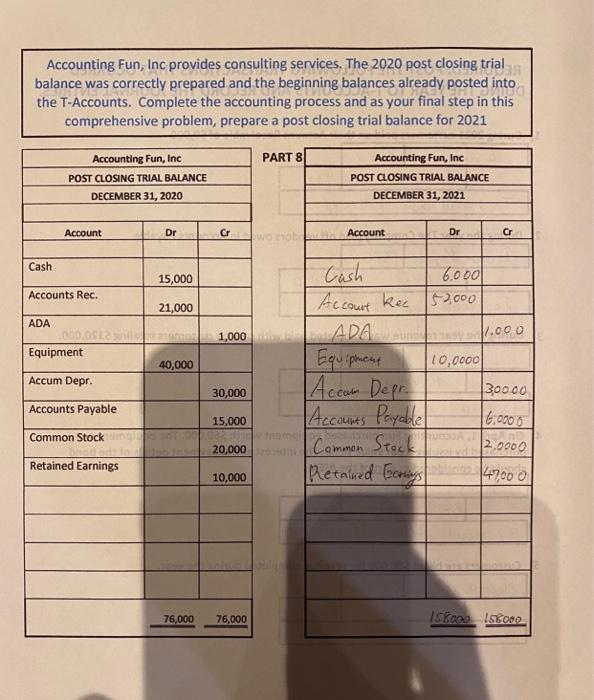 Accounting Fun, Inc provides consulting services. The 2020 post closing trial
balance was correctly prepared and the beginning balances already posted into
the T-Accounts. Complete the accounting process and as your final step in this
comprehensive problem, prepare a post closing trial balance for 2021
Accounting Fun, Inc
POST CLOSING TRIAL BALANCE
DECEMBER 31, 2020
Account Dr Cr
Cash 15,000
Accounts Rec. 21,000
ADA 1,000
Equipment 40,000
Accum Depr. 30,000
Accounts Payable 15,000
Common Stock 20,000
Retained Earnings 10,000
76,000 76,000
PART 8
Accounting Fun, Inc
POST CLOSING TRIAL BALANCE
DECEMBER 31, 2021
Account Dr Cr
Cash 6.000
Account Rec 52,000
ADA 1.000
Equipment 10,0000
Accum Depr. 30000
Accounts Payable 6,0000
Common Stock 2,0000
Retained Earnings 47,000
158000 158000